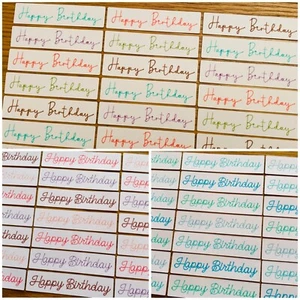 Happy Birthday Happy Birthday Happy Birthday
Happy Birthday Happy Birthday Happy Birthday
Happy Birthday Happy Birthday Happy Birthday
Happy Birthday Happy Birthday Happy Birthday
Happy Birthday Happy Birthday Happy Birthday
Happy Birthday Happy Birthday Happy Birthday
Birthday Happy Birthday
Birthday Happy Birthday
Birthday Happy Birthday
Birthday Happy Birthday
Birthday Happy Birthday
Birthday Happy Birthday
Happy Birthday
Happy Birthday Happy
Happy Birthday Happy
Happy Birthday Happy
Happy Birthday Happy
Happy Birthday Happy
Happy Birthday Happy
Happy Birthday Happy